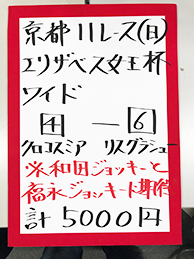 京都11レース(日)
エリザベス女王杯
ワイド
四 — 6
クロコスミア リスグラシュー
※和田ジョッキーと
福永ジョッキーに期待
計5000円